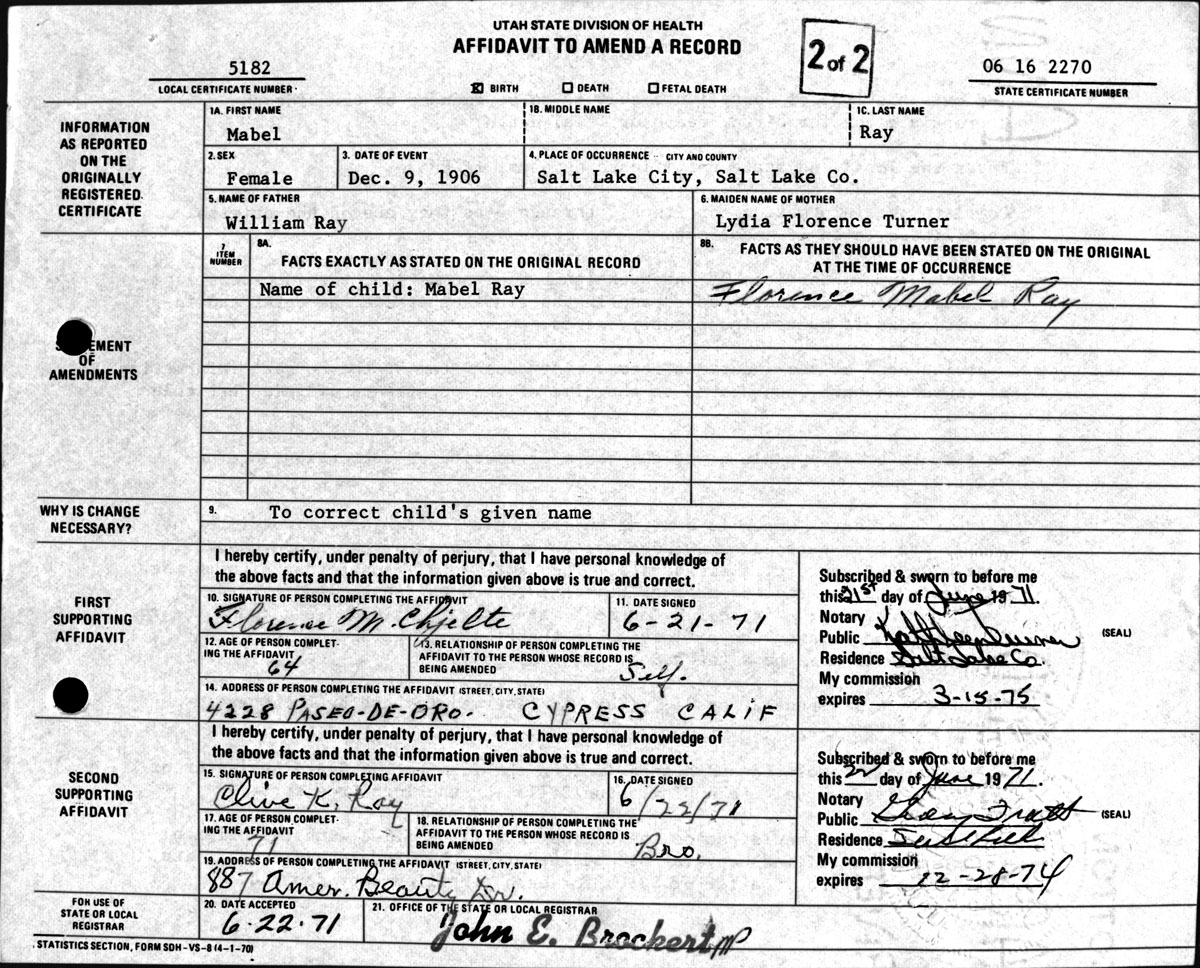 UTAH STATE DIVISION OF HEALTH
AFFIDAVIT TO AMEND A RECORD
2 of 2
5182
LOCAL CERTIFICATE NUMBER
☒ BIRTH ☐ DEATH ☐ FETAL DEATH
06 16 2270
STATE CERTIFICATE NUMBER
INFORMATION
AS REPORTED
ON THE
ORIGINALLY
REGISTERED
CERTIFICATE
1A. FIRST NAME 1B. MIDDLE NAME 1C. LAST NAME
Mabel Ray
2. SEX 3. DATE OF EVENT 4. PLACE OF OCCURRENCE - CITY AND COUNTY
Female Dec. 9, 1906 Salt Lake City, Salt Lake Co.
5. NAME OF FATHER 6. MAIDEN NAME OF MOTHER
William Ray Lydia Florence Turner
OF
AMENDMENTS
7
ITEM
NUMBER
8A.
FACTS EXACTLY AS STATED ON THE ORIGINAL RECORD
8B. FACTS AS THEY SHOULD HAVE BEEN STATED ON THE ORIGINAL
AT THE TIME OF OCCURRENCE
Name of child: Mabel Ray Florence Mabel Ray
WHY IS CHANGE
NECESSARY?
9. To correct child's given name
FIRST
SUPPORTING
AFFIDAVIT
I hereby certify, under penalty of perjury, that I have personal knowledge of
the above facts and that the information given above is true and correct.
10. SIGNATURE OF PERSON COMPLETING THE AFFIDAVIT 11. DATE SIGNED
Florence M. 6-21-71
12. AGE OF PERSON COMPLET-
ING THE AFFIDAVIT
64
13. RELATIONSHIP OF PERSON COMPLETING THE
AFFIDAVIT TO THE PERSON WHOSE RECORD IS
BEING AMENDED
Self.
14. ADDRESS OF PERSON COMPLETING THE AFFIDAVIT (STREET, CITY, STATE)
4228 PASEO-DE-ORO- CYPRESS CALIF
Subscribed & sworn to before me
this 21st day of June 1971.
Notary
Public Kathleen (SEAL)
Residence Salt Lake Co.
My commission
expires 3-15-75
SECOND
SUPPORTING
AFFIDAVIT
I hereby certify, under penalty of perjury, that I have personal knowledge of
the above facts and that the information given above is true and correct.
15. SIGNATURE OF PERSON COMPLETING AFFIDAVIT 16. DATE SIGNED
Clive K. Ray 6/22/71
17. AGE OF PERSON COMPLET-
ING THE AFFIDAVIT
71
18. RELATIONSHIP OF PERSON COMPLETING THE
AFFIDAVIT TO THE PERSON WHOSE RECORD IS
BEING AMENDED
Bro.
19. ADDRESS OF PERSON COMPLETING THE AFFIDAVIT (STREET, CITY, STATE)
887 Amer. Beauty Dr.
Subscribed & sworn to before me
this 22 day of June 1971.
Notary
Public (SEAL)
Residence
My commission
expires 28-74
FOR USE OF
STATE OR LOCAL
REGISTRAR
20. DATE ACCEPTED 21. OFFICE OF THE STATE OR LOCAL REGISTRAR
6-22-71 John E. Brockert
STATISTICS SECTION, FORM SDH-VS-8 (4-1-70)